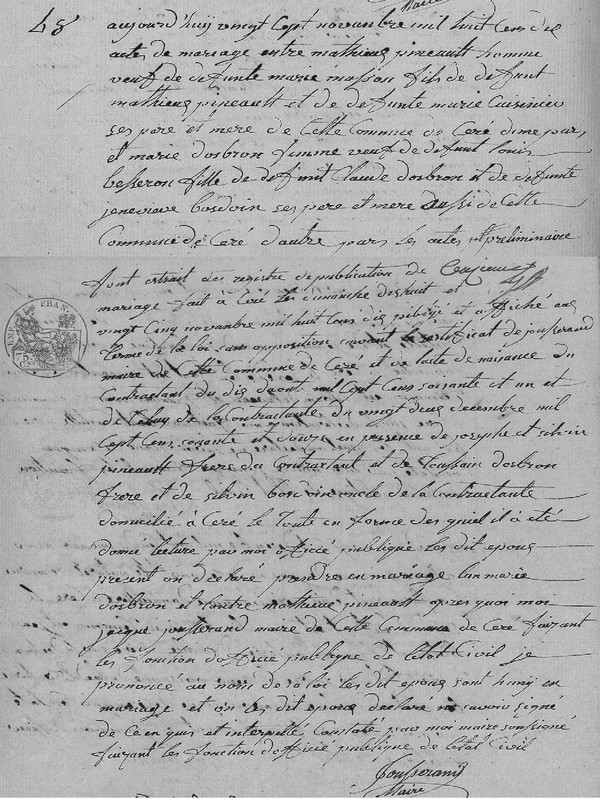 Maire
48
aujourd'huy vingt Sept novembre mil huit Cens dix
acte de mariage entre mathieu pineault homme
veuf de defunte marie masson fils de defunt
mathieu pineault et de defunte marie Cuisinier
ses pere et mere de Cette Commune de Ceré dune part
et marie dosbron femme veuf de defunt louis
besseron fille de defunt Claude dosbron et de defunte
jenevieve bosdoin ses pere et mere aussi de Cette
Commune de Ceré d'autre part les actes preliminaire
sont extrait des registre de publication de
mariage fait à Ceré les dimanche dishuit et
vingt Cinq novembre mil huit Cens dix publié et affiché aux
terme de la loi sans opposition suivant le certificat de jousserand
maire de Cette Commune de Ceré et de lacte de naisance du
Contractant du dix daout mil Sept Cens soisante et un et
de Celuy de la Contractante du vingt deux decembre mil
Sept Cens soisante et douze en presence de josephe et silvin
pineault frere du Contractant et de Toussain dosbron
frere et de silvin bosdoin oncle de la Contractante
domicilié à Ceré le Toute en forme des quiel il à été
donné lecture par moi officié publique les dit epoux
present on declaré prendre en mariage lun marie
dosbron et lautre mathieu pineault apres quoi moi
jacque jousserand maire de Cette Commune de Ceré faizant
les fonction dofficié publique de letat Civil je
prononcé au nom de la loi les dit epoux sont huny en
mariage et on les dit epoux declaré ne savoir signé
de Ce enquis et interpellé Constaté par moi maire soussigné
faizant les fonction dofficié publique de letat Civil
Jousserand
Maire